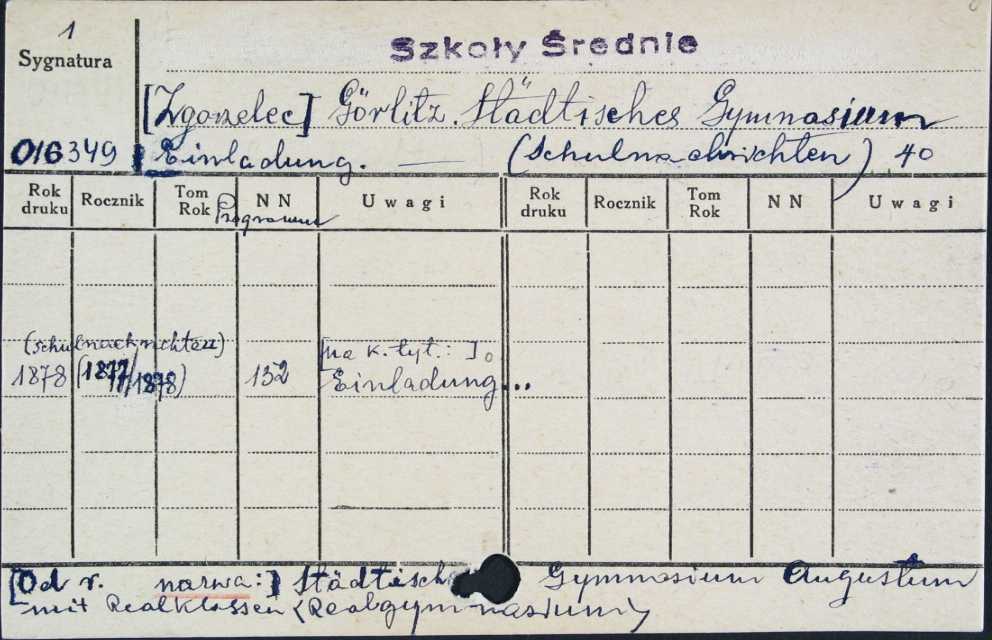 1
Sygnatura
Szkoły Średnie
[Zgorzelec] Görlitz. Städtisches Gymnasium
016349 Einladung. — (Schulnachrichten) 40
Rok druku Rocznik Tom Rok Programm NN Uwagi Rok druku Rocznik Tom Rok NN Uwagi
(Schulnachrichten) [na k. tyt.: ]
1878 (1877/1878) 132 Einladung...
[Od r. nazwa:] Städtisch Gymnasium Augustum
mit Realklassen (Realgymnasium)